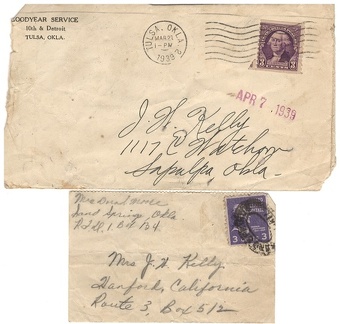 GOODYEAR SERVICE
10th & Detroit
TULSA, OKLA.
TULSA, OKLA.
MAR 21
1-PM
1939
3 3
APR 7 1939
J. H. Kelly
1117 E Watchorn
Sapulpa, Okla.
Sand Springs, Okla
Mrs J. H. Kelly.
Hanford, California
Route 3, Box 512
3 3